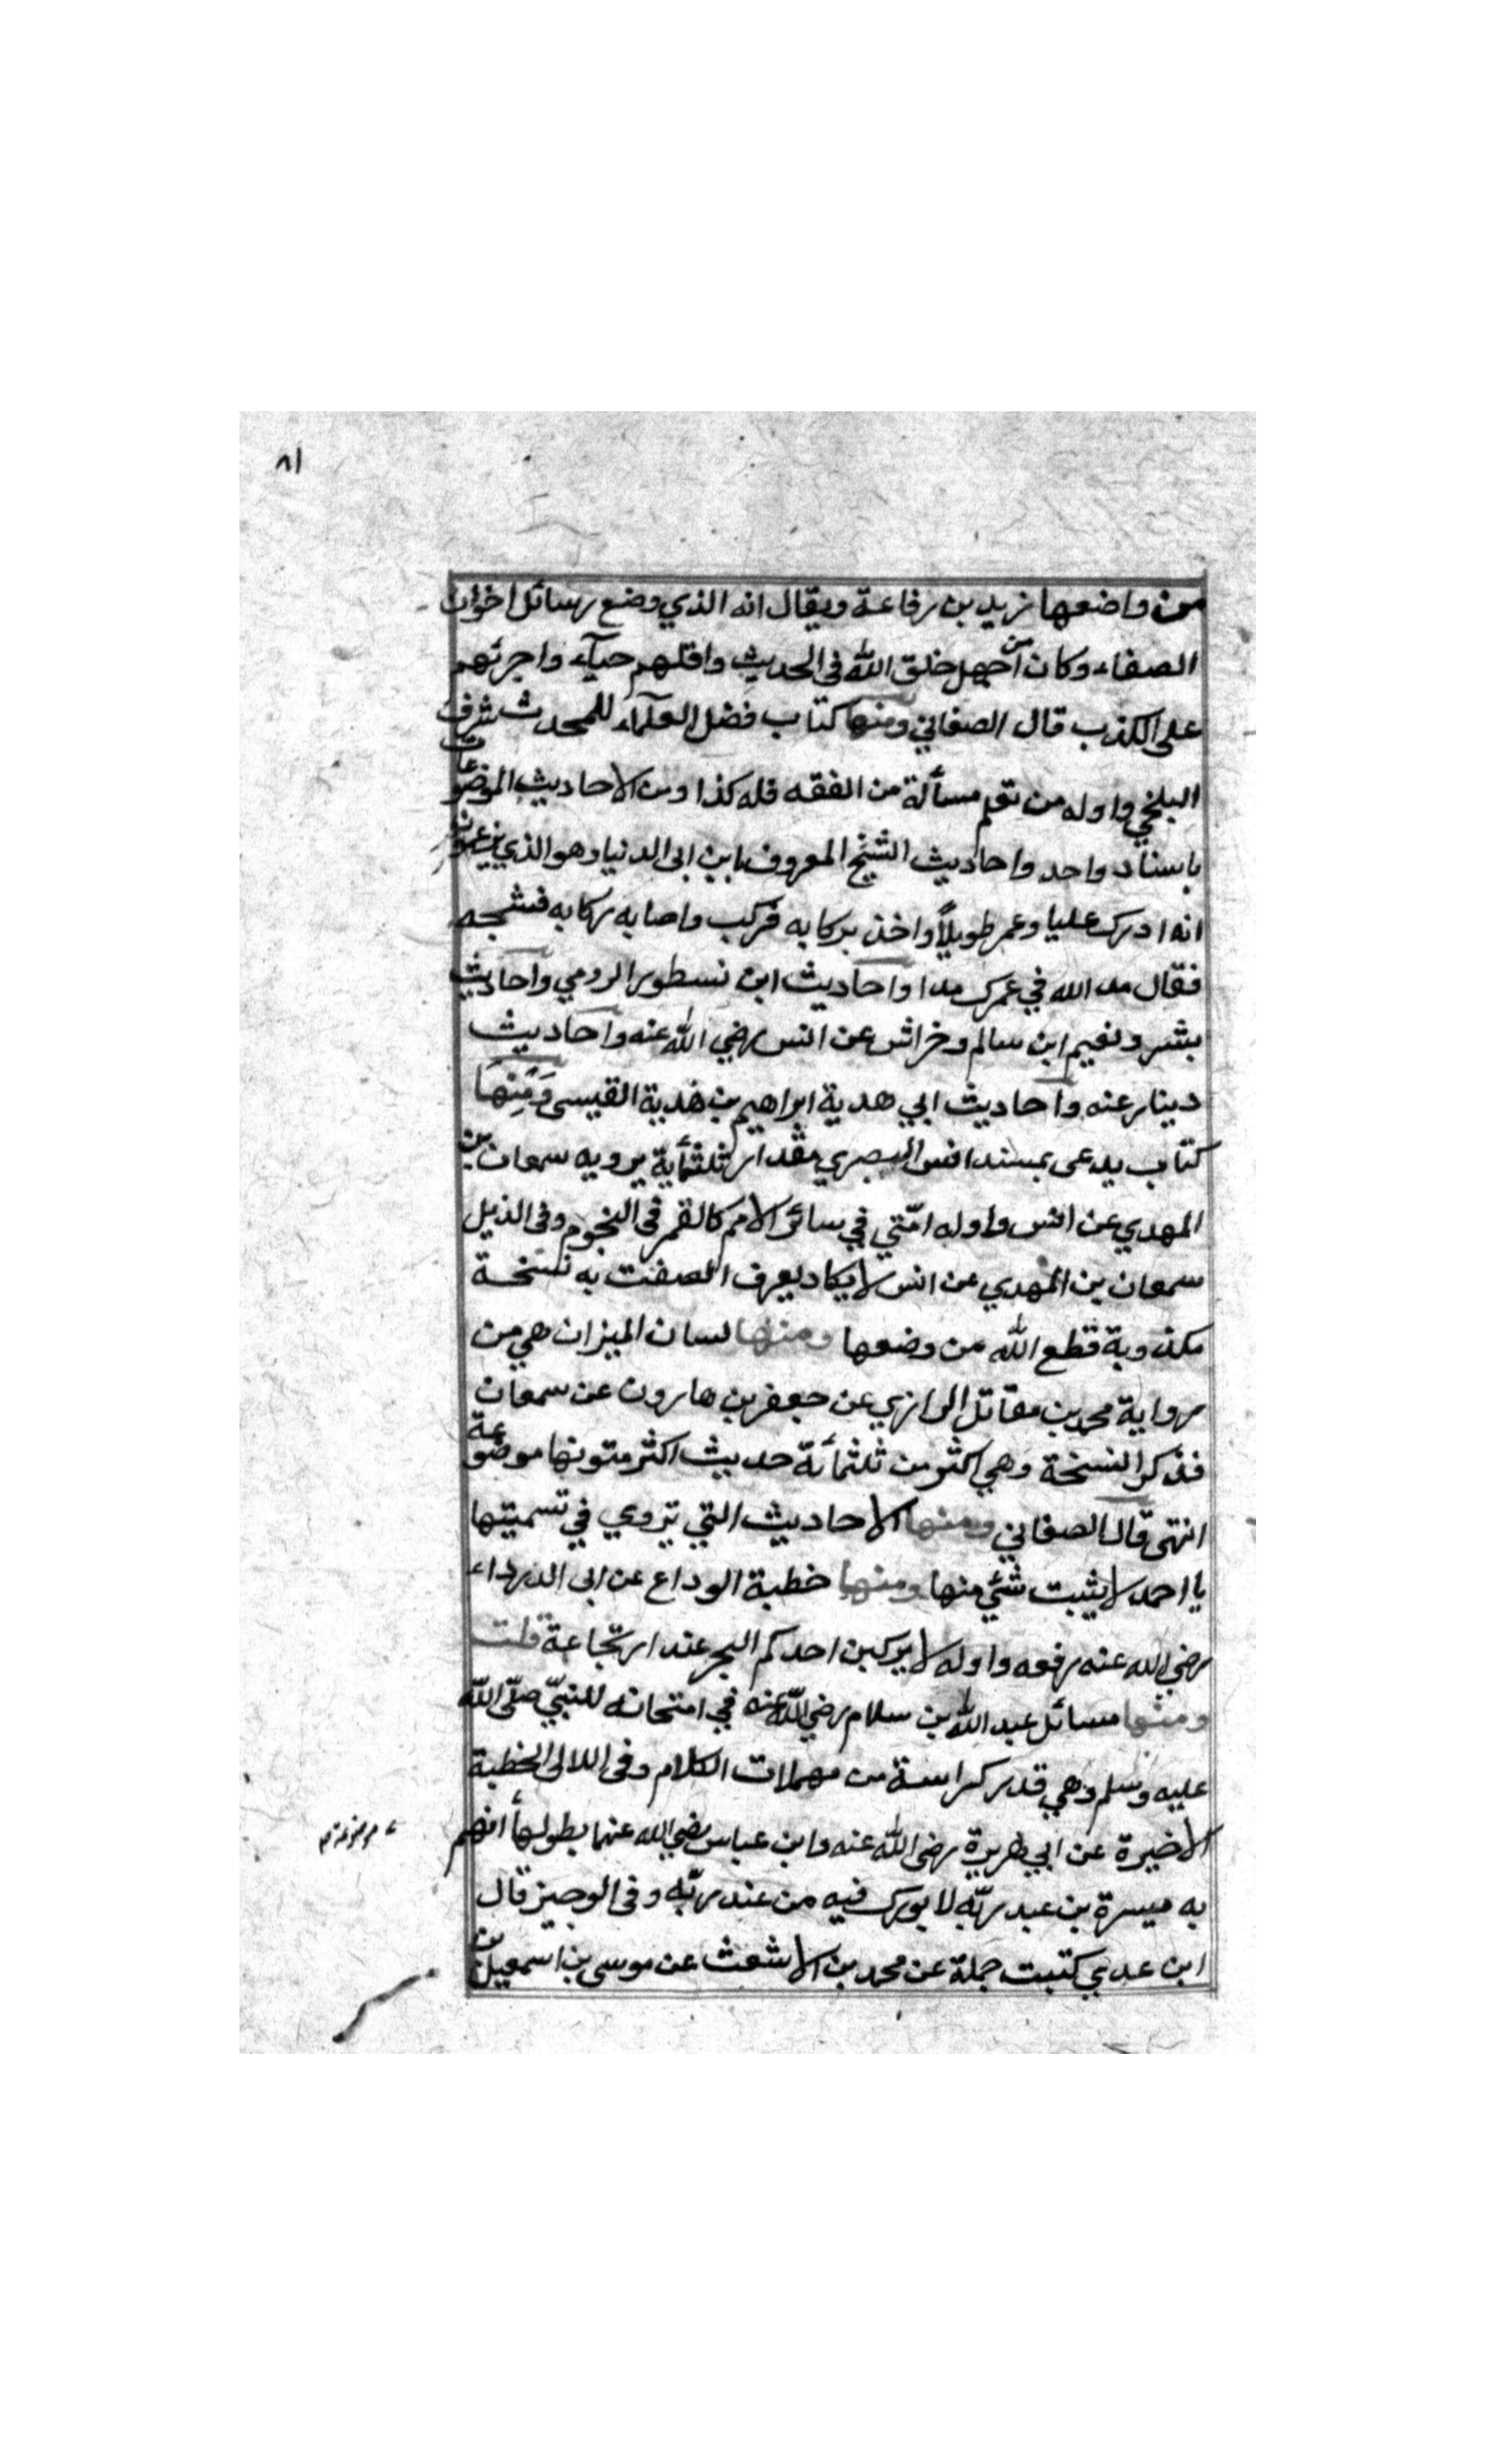 ٨١
من واضعها زيد بن رفاعة ويقال انه الذي وضع رسائل اخوان
الصفاء وكان من اجهل خلق الله في الحديث واقلهم حيآء واجرئهم
على الكذب قال الصغاني ومنها كتاب فضل العلمآء للمحدث شرف
البلخي واوله من تعلم مسألة من الفقه فله كذا ومن الاحاديث الموضوعات
باسناد واحد واحاديث الشيخ المعروف بابن ابى الدنيا وهو الذي يزعمون
انه ادرك عليا وعمر طويلاً واخذ بركابه فركب واصابه ركابه فشجه
فقال مد الله في عمرك مدا واحاديث ابن نسطور الرومي واحاديث
بشر ونعيم ابن سالم وخراش عن انس رضي الله عنه واحاديث
دينار عنه واحاديث ابي هدبة ابراهيم بن هدبة القيسى ومنها
كتاب يدعى بمسند انس البصري مقدار ثلثمأية يرويه سمعان بن
المهدي عن انس واوله امّتي في سائر الامم كالقمر في النجوم وفى الذيل
سمعان بن المهدي عن انس لا يكاد يعرف الصقت به نسخة
مكذوبة قطع الله من وضعها ومنها لسان الميزان هي من
رواية محمد بن مقاتل الرازي عن جعفر بن هارون عن سمعان
فذكر النسخة وهي اكثر من ثلثمأئة حديث اكثر متونها موضوعة
انتهى قال الصغاني ومنها الاحاديث التي تروي في تسميتها
يا احمد لا يثبت شئ منها ومنها خطبة الوداع عن ابى الدرداء
رضي الله عنه رفعه واوله لا يركبن احدكم البحر عند ارتجاعة قلت
ومنها مسائل عبد الله بن سلام رضي الله عنه في امتحانه للنبيّ صلّى الله
عليه وسلم وهي قدر كراسة من مهملات الكلام وفى اللالى الخطبة
الاخيرة عن ابي هريرة رضى الله عنه وابن عباس رضي الله عنهما بطولها اتهم
موضوعة
به ميسرة بن عبد ربّه لا بورك فيه من عند ربّه وفى الوجيز قال
ابن عدي كتبت جملة عن محمد بن الاشعث عن موسى بن اسمعيل بن